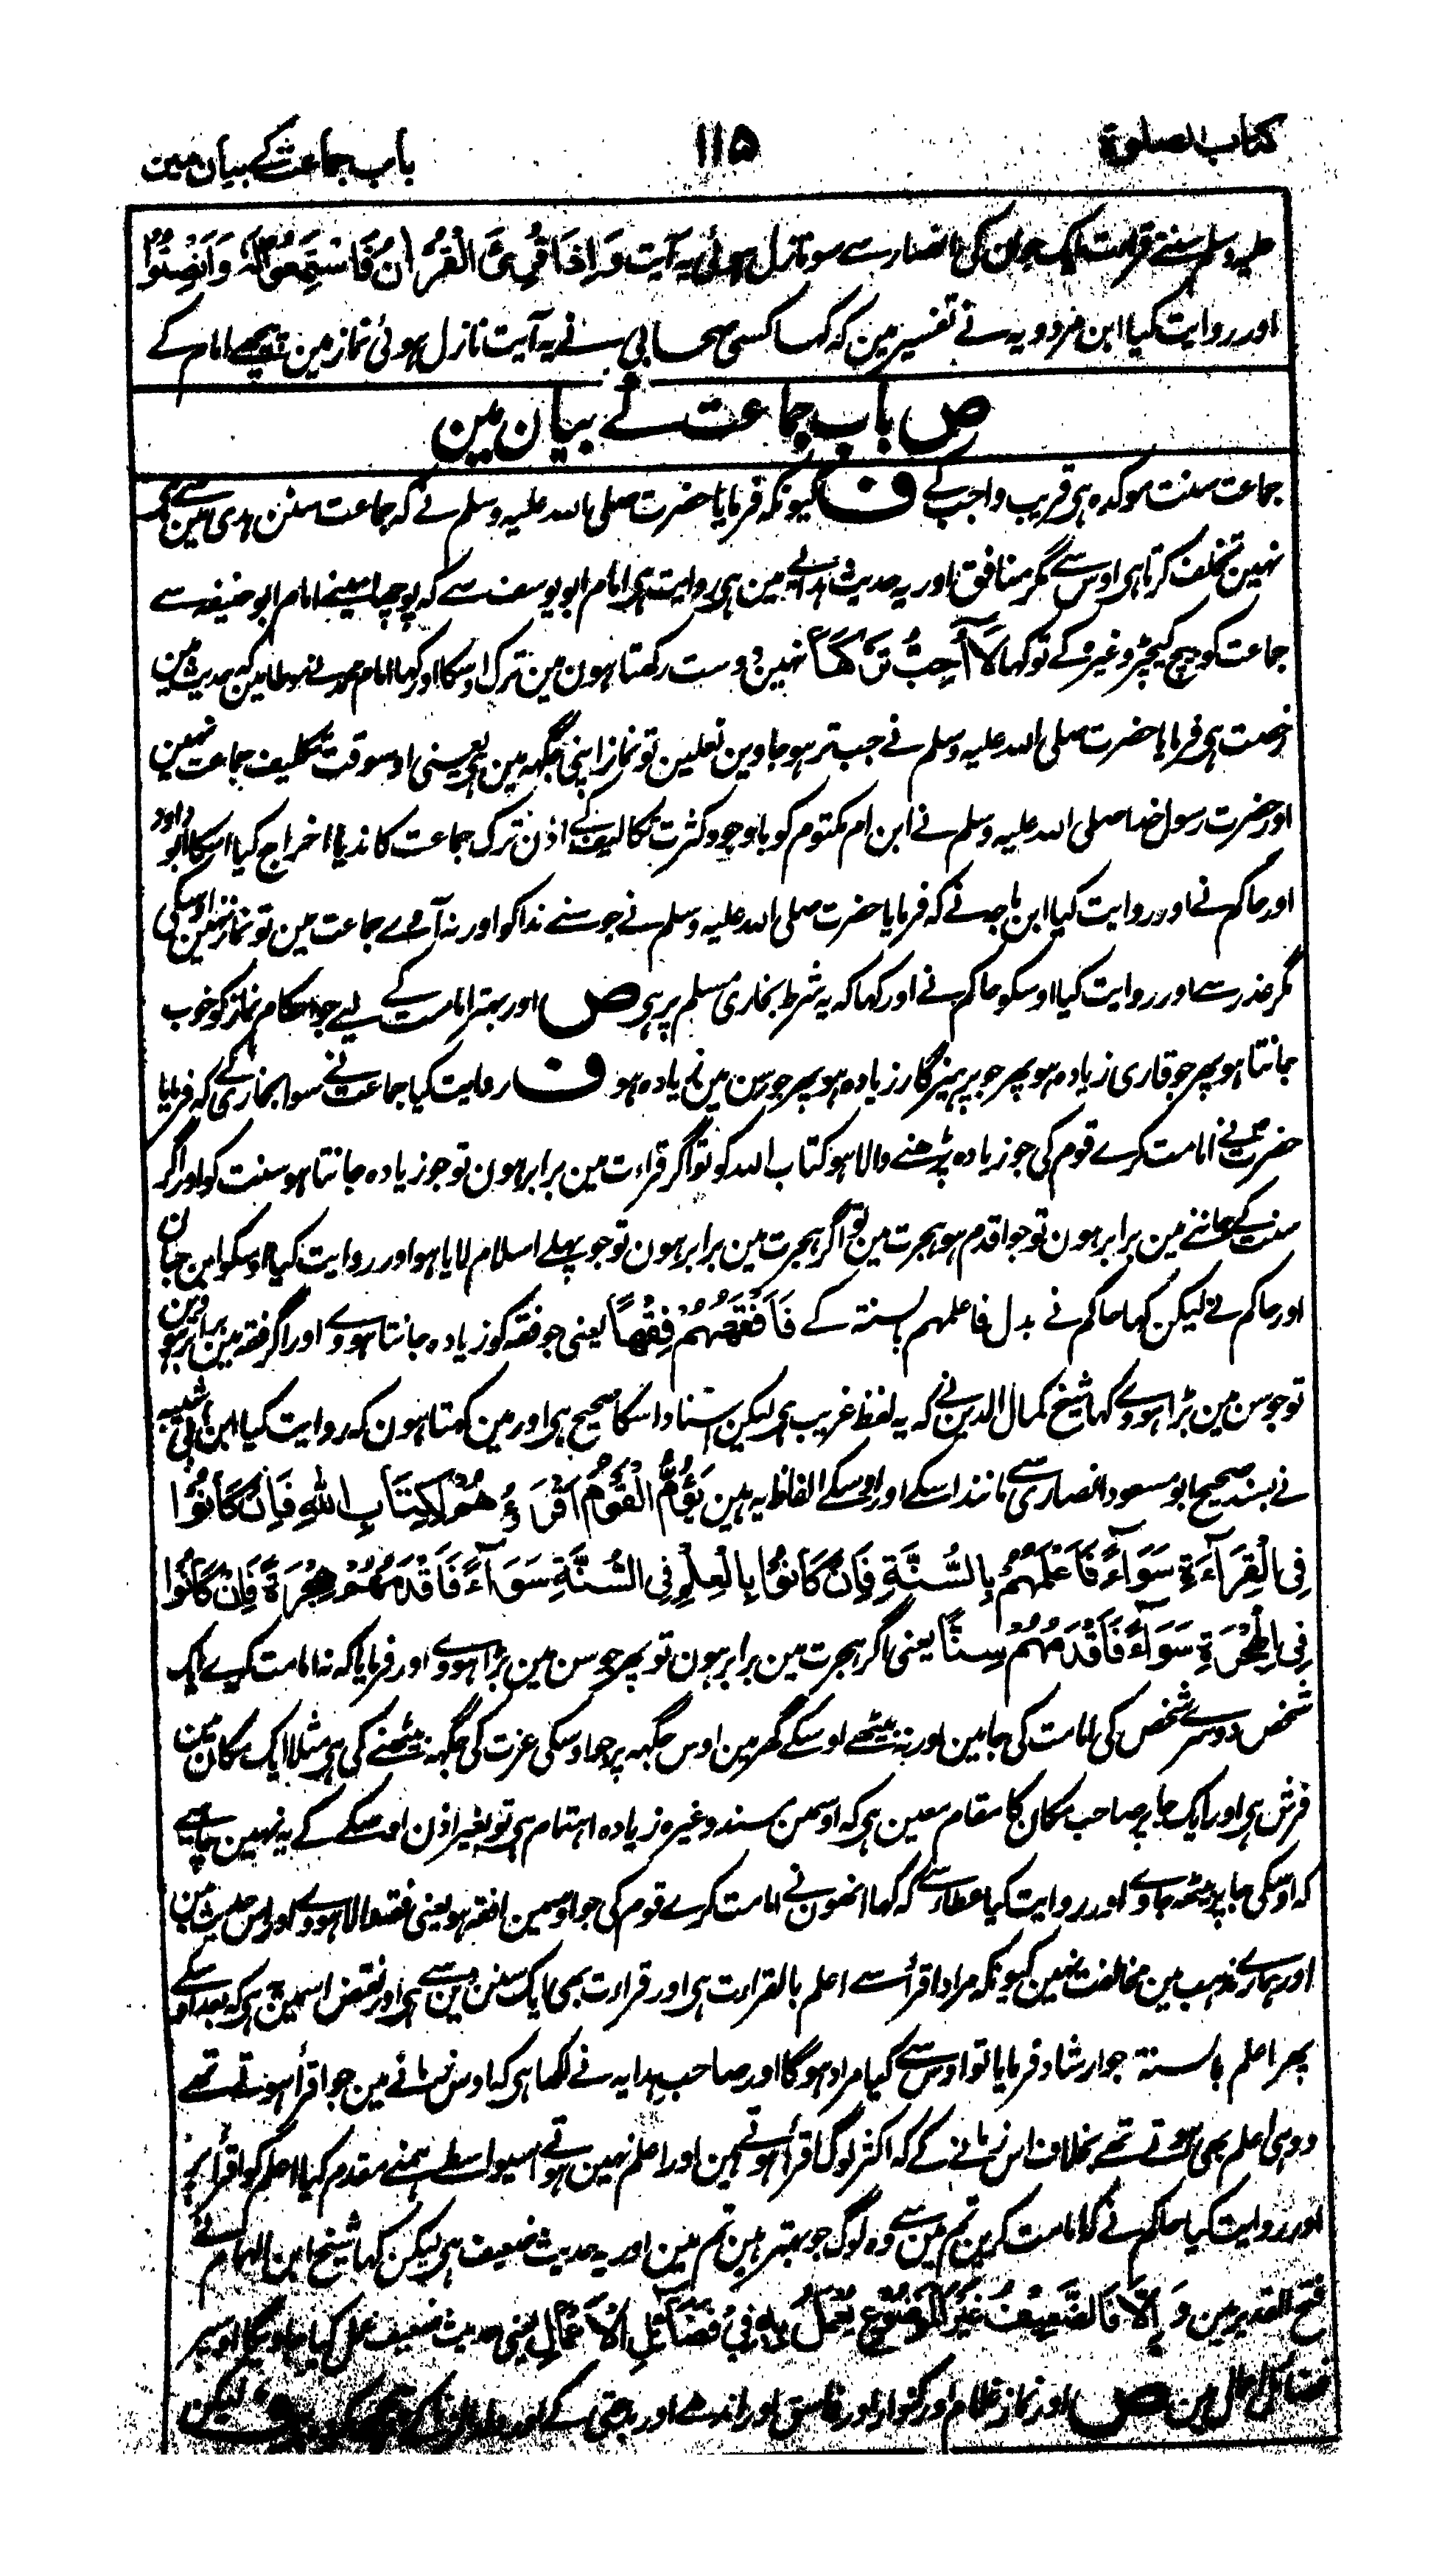 کتاب الصلوة ۱۱۵ باب جماعت کے بیان مین
علیہ وسلم نے قراءت ایک جوان کی انصار سے سو نازل ہوئی یہ آیت وَاِذَا قُرِئَ الْقُرْاٰنُ فَاسْتَمِعُوْا لَهٗ وَاَنْصِتُوْا
اور روایت کیا ابن مردویہ نے تفسیر مین کہ کہا کسی صحابی نے یہ آیت نازل ہوئی نماز مین پیچھے امام کے
ص باب جماعت کے بیان مین
جماعت سنت موکدہ ہی قریب واجب کے ف کیونکہ فرمایا حضرت صلی اللہ علیہ وسلم نے کہ جماعت سنن ہدی مین سے ہی
نہین تخلف کرتا ہی اوس سے مگر منافق اور یہ حدیث ہدایے مین ہی روایت ہی امام ابو یوسف سے کہ پوچھا مینے امام ابو حنیفہ سے
جماعت کو بیچ کیچڑ وغیرہ کے تو کہا لَا اُحِبُّ تَرْكَهَا نہین دوست رکھتا ہون مین ترک اوسکا اور کہا امام محمد نے موطا مین کہ حدیث مین
رخصت ہی فرمایا حضرت صلی اللہ علیہ وسلم نے جب تر ہو جاوین نعلین تو نماز اپنی جگہہ مین ہی یعنی اوسوقت تکلیف جماعت نہین
اور حضرت رسول خدا صلی اللہ علیہ وسلم نے ابن ام مکتوم کو باوجود کثرت تکالیف کے اذن ترک جماعت کا ندیا اخراج کیا اسکا ابو داود
اور حاکم نے اور روایت کیا ابن ماجہ نے کہ فرمایا حضرت صلی اللہ علیہ وسلم نے جو سنے ندا کو اور نہ آوے جماعت مین تو نماز نہین اوسکی
مگر عذر سے اور روایت کیا اوسکو حاکم نے اور کہا کہ یہ شرط بخاری مسلم پر ہی ص اور بہتر امامت کے لیے جو احکام نماز کو خوب
جانتا ہو پھر جو قاری زیادہ ہو پھر جو پرہیزگار زیادہ ہو پھر جو سن مین زیادہ ہو ف روایت کیا جماعت نے سوا بخاری کے کہ فرمایا
حضرت نے امامت کرے قوم کی جو زیادہ پڑھنے والا ہو کتاب اللہ کو تو اگر قراءت مین برابر ہون تو جو زیادہ جانتا ہو سنت کو اور اگر
سنت کے جاننے مین برابر ہون تو جو اقدم ہو ہجرت مین تو اگر ہجرت مین برابر ہون تو جو پہلے اسلام لایا ہو اور روایت کیا اوسکو ابن حبان
اور حاکم نے لیکن کہا حاکم نے بدل فاعلمہم بالسنۃ کے فَاَفْقَهُهُمْ فِقْهًا یعنی جو فقہ کو زیادہ جانتا ہووے اور اگر فقہ مین برابر ہووین
تو جو سن مین بڑا ہووے کہا شیخ کمال الدین نے کہ یہ لفظ غریب ہی لیکن اسناد اسکا صحیح ہی اور مین کہتا ہون کہ روایت کیا ابن ابی شیبہ
نے بسند صحیح ابو مسعود انصاری سے مانند اسکے اور اوسکے الفاظ یہ ہین يَؤُمُّ الْقَوْمَ اَقْرَءُهُمْ لِكِتَابِ اللّٰهِ فَاِنْ كَانُوْا
فِی الْقِرَآءَةِ سَوَآءً فَاَعْلَمُهُمْ بِالسُّنَّةِ فَاِنْ كَانُوْا بِالْعِلْمِ فِی السُّنَّةِ سَوَآءً فَاَقْدَمُهُمْ هِجْرَةً فَاِنْ كَانُوْا
فِی الْهِجْرَةِ سَوَآءً فَاَقْدَمُهُمْ سِنًّا یعنی اگر ہجرت مین برابر ہون تو پھر جو سن مین بڑا ہووے اور فرمایا کہ نہ امامت کرے ایک
شخص دوسرے شخص کی امامت کی جا مین اور نہ بیٹھے اوسکے گھر مین اوس جگہہ پر جو اوسکی عزت کی جگہہ بیٹھنے کی ہی مثلا ایک مکان مین
فرش ہی اور ایک جا پر صاحب مکان کا مقام معین ہی کہ اوسمین مسند وغیرہ زیادہ اہتمام ہی تو بغیر اذن اوسکے کے یہ نہین چاہیے
کہ اوسکی جا پر بیٹھ جاوے اور روایت کیا عطا سے کہ کہا انھون نے امامت کرے قوم کی جو اوسمین افقہ ہو یعنی فقہ والا ہووے اور اس حدیث مین
اور ہمارے مذہب مین مخالفت نہین کیونکہ مراد اقرأ سے اعلم بالقراءت ہی اور قراءت بھی ایک سنن مین سے ہی اور نقض اسمین یہ ہی کہ بعد اوسکے
پھر اعلم بالسنۃ جو ارشاد فرمایا تو اوس سے کیا مراد ہوگا اور صاحب ہدایہ نے لکھا ہی کہ اوس زمانے مین جو اقرأ ہوتے تھے
وہی اعلم بھی ہوتے تھے بخلاف اس زمانے کے کہ اکثر لوگ اقرأ ہوتے ہین اور اعلم نہین ہوتے اسیواسطے ہمنے مقدم کیا اعلم کو اقرأ پر
اور روایت کیا حاکم نے کہ امامت کرین تم مین سے وہ لوگ جو بہتر ہین تم مین اور یہ حدیث ضعیف ہی لیکن کہا شیخ ابن الہمام نے
فتح القدیر مین وَ اِلَّا فَالضَّعِيْفُ غَيْرُ الْمَوْضُوْعِ يُعْمَلُ بِهٖ فِیْ فَضَآئِلِ الْاَعْمَالِ یعنی حدیث ضعیف عمل کیا جاویگا اوسپر
فضائل اعمال مین ص اور نماز غلام اور گنوار اور فاسق اور اندھے اور بدعتی کے اور ولد الزنا کے ف لیکن